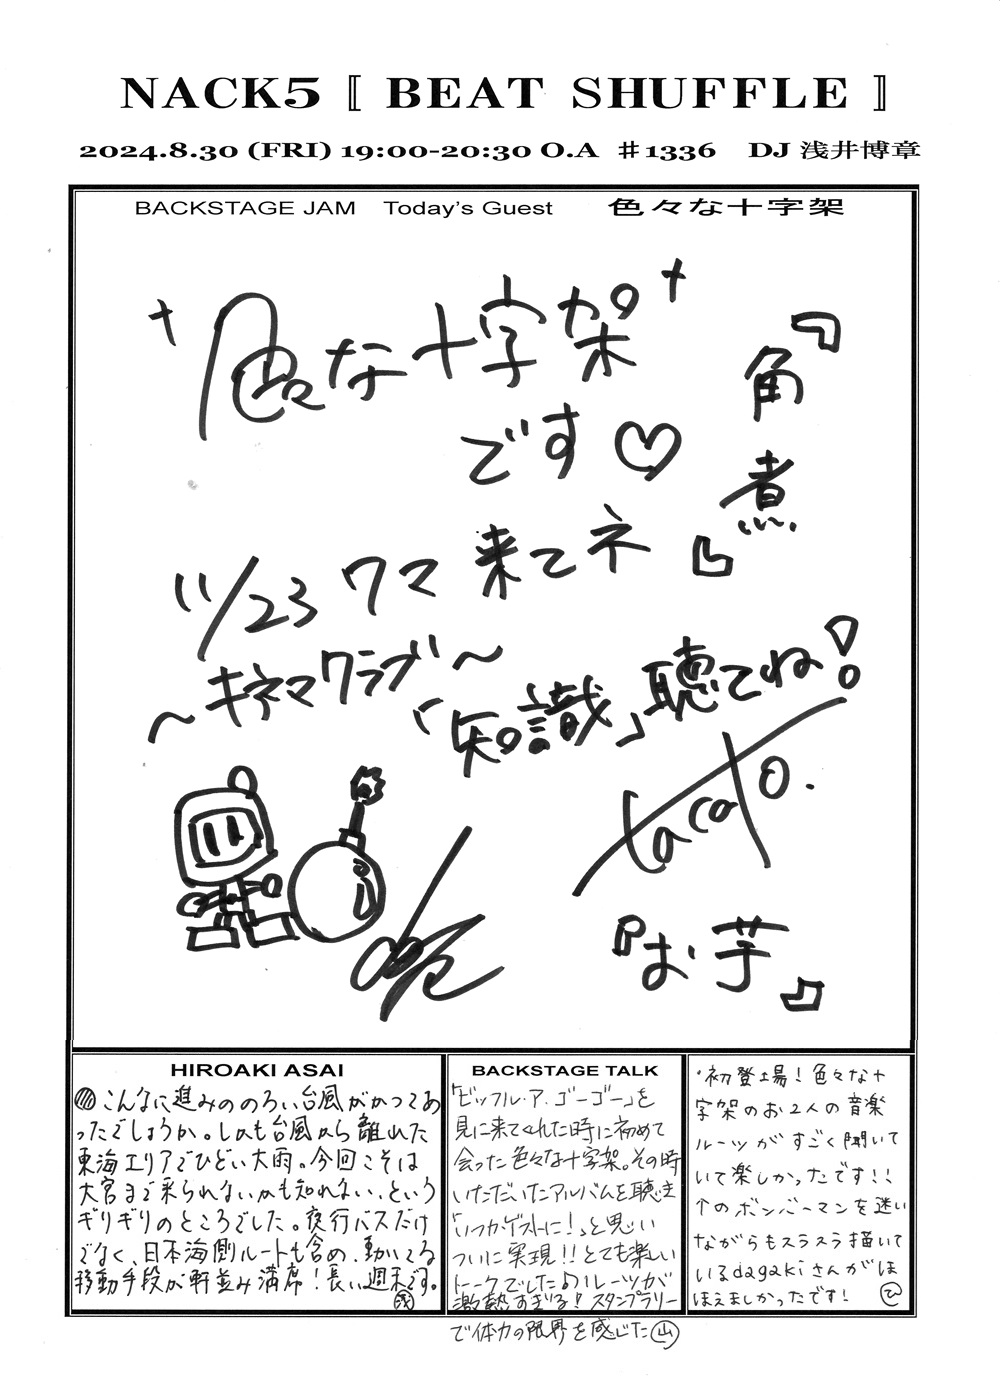 NACK5 〚 BEAT SHUFFLE 〛
2024.8.30 (FRI) 19:00-20:30 O.A ♯1336 DJ 浅井博章
BACKSTAGE JAM Today's Guest 色々な十字架
色々な十字架
です♡
『角煮』
11/23 ワマ 来てネ
～キネマクラブ～
「知識」聴てね!
tacato.
『お芋』
HIROAKI ASAI
こんなに進みののろい台風がかつてあ
ったでしょうか。しかも台風から離れた
東海エリアでひどい大雨。今回こそは
大宮まで来られないかも知れない、という
ギリギリのところでした。夜行バスだけ
でなく、日本海側ルートも含め、動いてる
移動手段が軒並み満席!長い週末です。
BACKSTAGE TALK
「ビッフル・ア・ゴーゴー」を
見に来てくれた時に初めて
会った色々な十字架。その時
いただいたアルバムを聴き
「いつかゲストに!」と思い
ついに実現!!とても楽しい
トークでしたよ♪ルーツが
激熱すぎる!スタンプラリー
で体力の限界を感じた㊤
・初登場!色々な十
字架のお2人の音楽
ルーツがすごく聞いて
いて楽しかったです!!
↑のボンバーマンを迷い
ながらもスラスラ描いて
いるdagakiさんがほ
ほえましかったです! ㋪